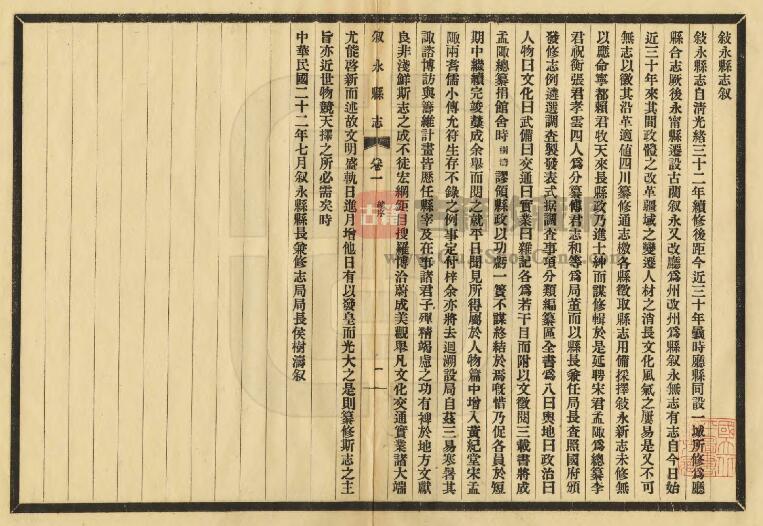 敍永縣志叙
敍永縣志自淸光緒三十二年續修後距今近三十年曩時廳縣同設一城所修爲廳
縣合志厥後永甯縣遷設古藺叙永又改廳爲州改州爲縣叙永無志有志自今日始
近三十年來其間政體之改革疆域之變遷人材之消長文化風氣之屢易是又不可
無志以徵其沿革適値四川纂修通志檄各縣徵取縣志用備採擇敍永新志未修無
以應命寧都賴君牧天來長縣政乃進士紳而謀修輯於是延聘宋君孟陬爲總纂李
君祝衡張君孝雲四人爲分纂傅君志和等爲局董而以縣長兼任局長查照國府頒
發修志例遴選調查製發表式据調查事項分類編纂區全書爲八曰輿地曰政治曰
人物曰文化曰武備曰交通曰實業曰雜記各爲若干目而附以文徵閱三載書將成
孟陬總纂捐館舍時樹濤謬領縣政以功虧一簣不謀終結於焉嘅惜乃促各員於短
期中繼續完竣藁成余舉而閱之就平日聞見所得屬於人物篇中增入黃紀堂宋孟
陬兩耆儒小傳允符生存不錄之例事定付梓余亦將去迴溯設局自玆三易寒暑其
諏諮博訪與籌維計畫皆歷任縣宰及在事諸君子殫精竭慮之功有裨於地方文獻
良非淺鮮斯志之成不徒宏綱鉅目搜羅博洽蔚成美觀舉凡文化交通實業諸大端
叙永縣志 卷一 一
尤能啓新而述故文明盛軌日進月增他日有以發皇而光大之是則纂修斯志之主
旨亦近世物競天擇之所必需矣時
中華民國二十二年七月叙永縣縣長兼修志局局長侯樹濤叙
古籍